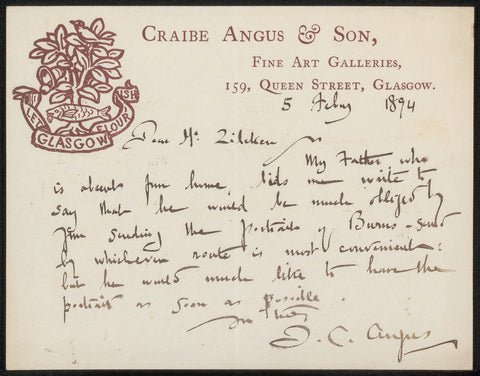 CRAIBE ANGUS & SON,
FINE ART GALLERIES,
159, QUEEN STREET, GLASGOW.
LET GLASGOW FLOURISH
5 Feby 1894
Dear Mr. Zilcken
My Father who
is absent from home, bids me write to
say that he would be much obliged by
your sending the Portraits of Burns - send
by whichever route is most convenient:
but he would much like to have the
portrait as soon as possible.
Yours truly
D. C. Angus